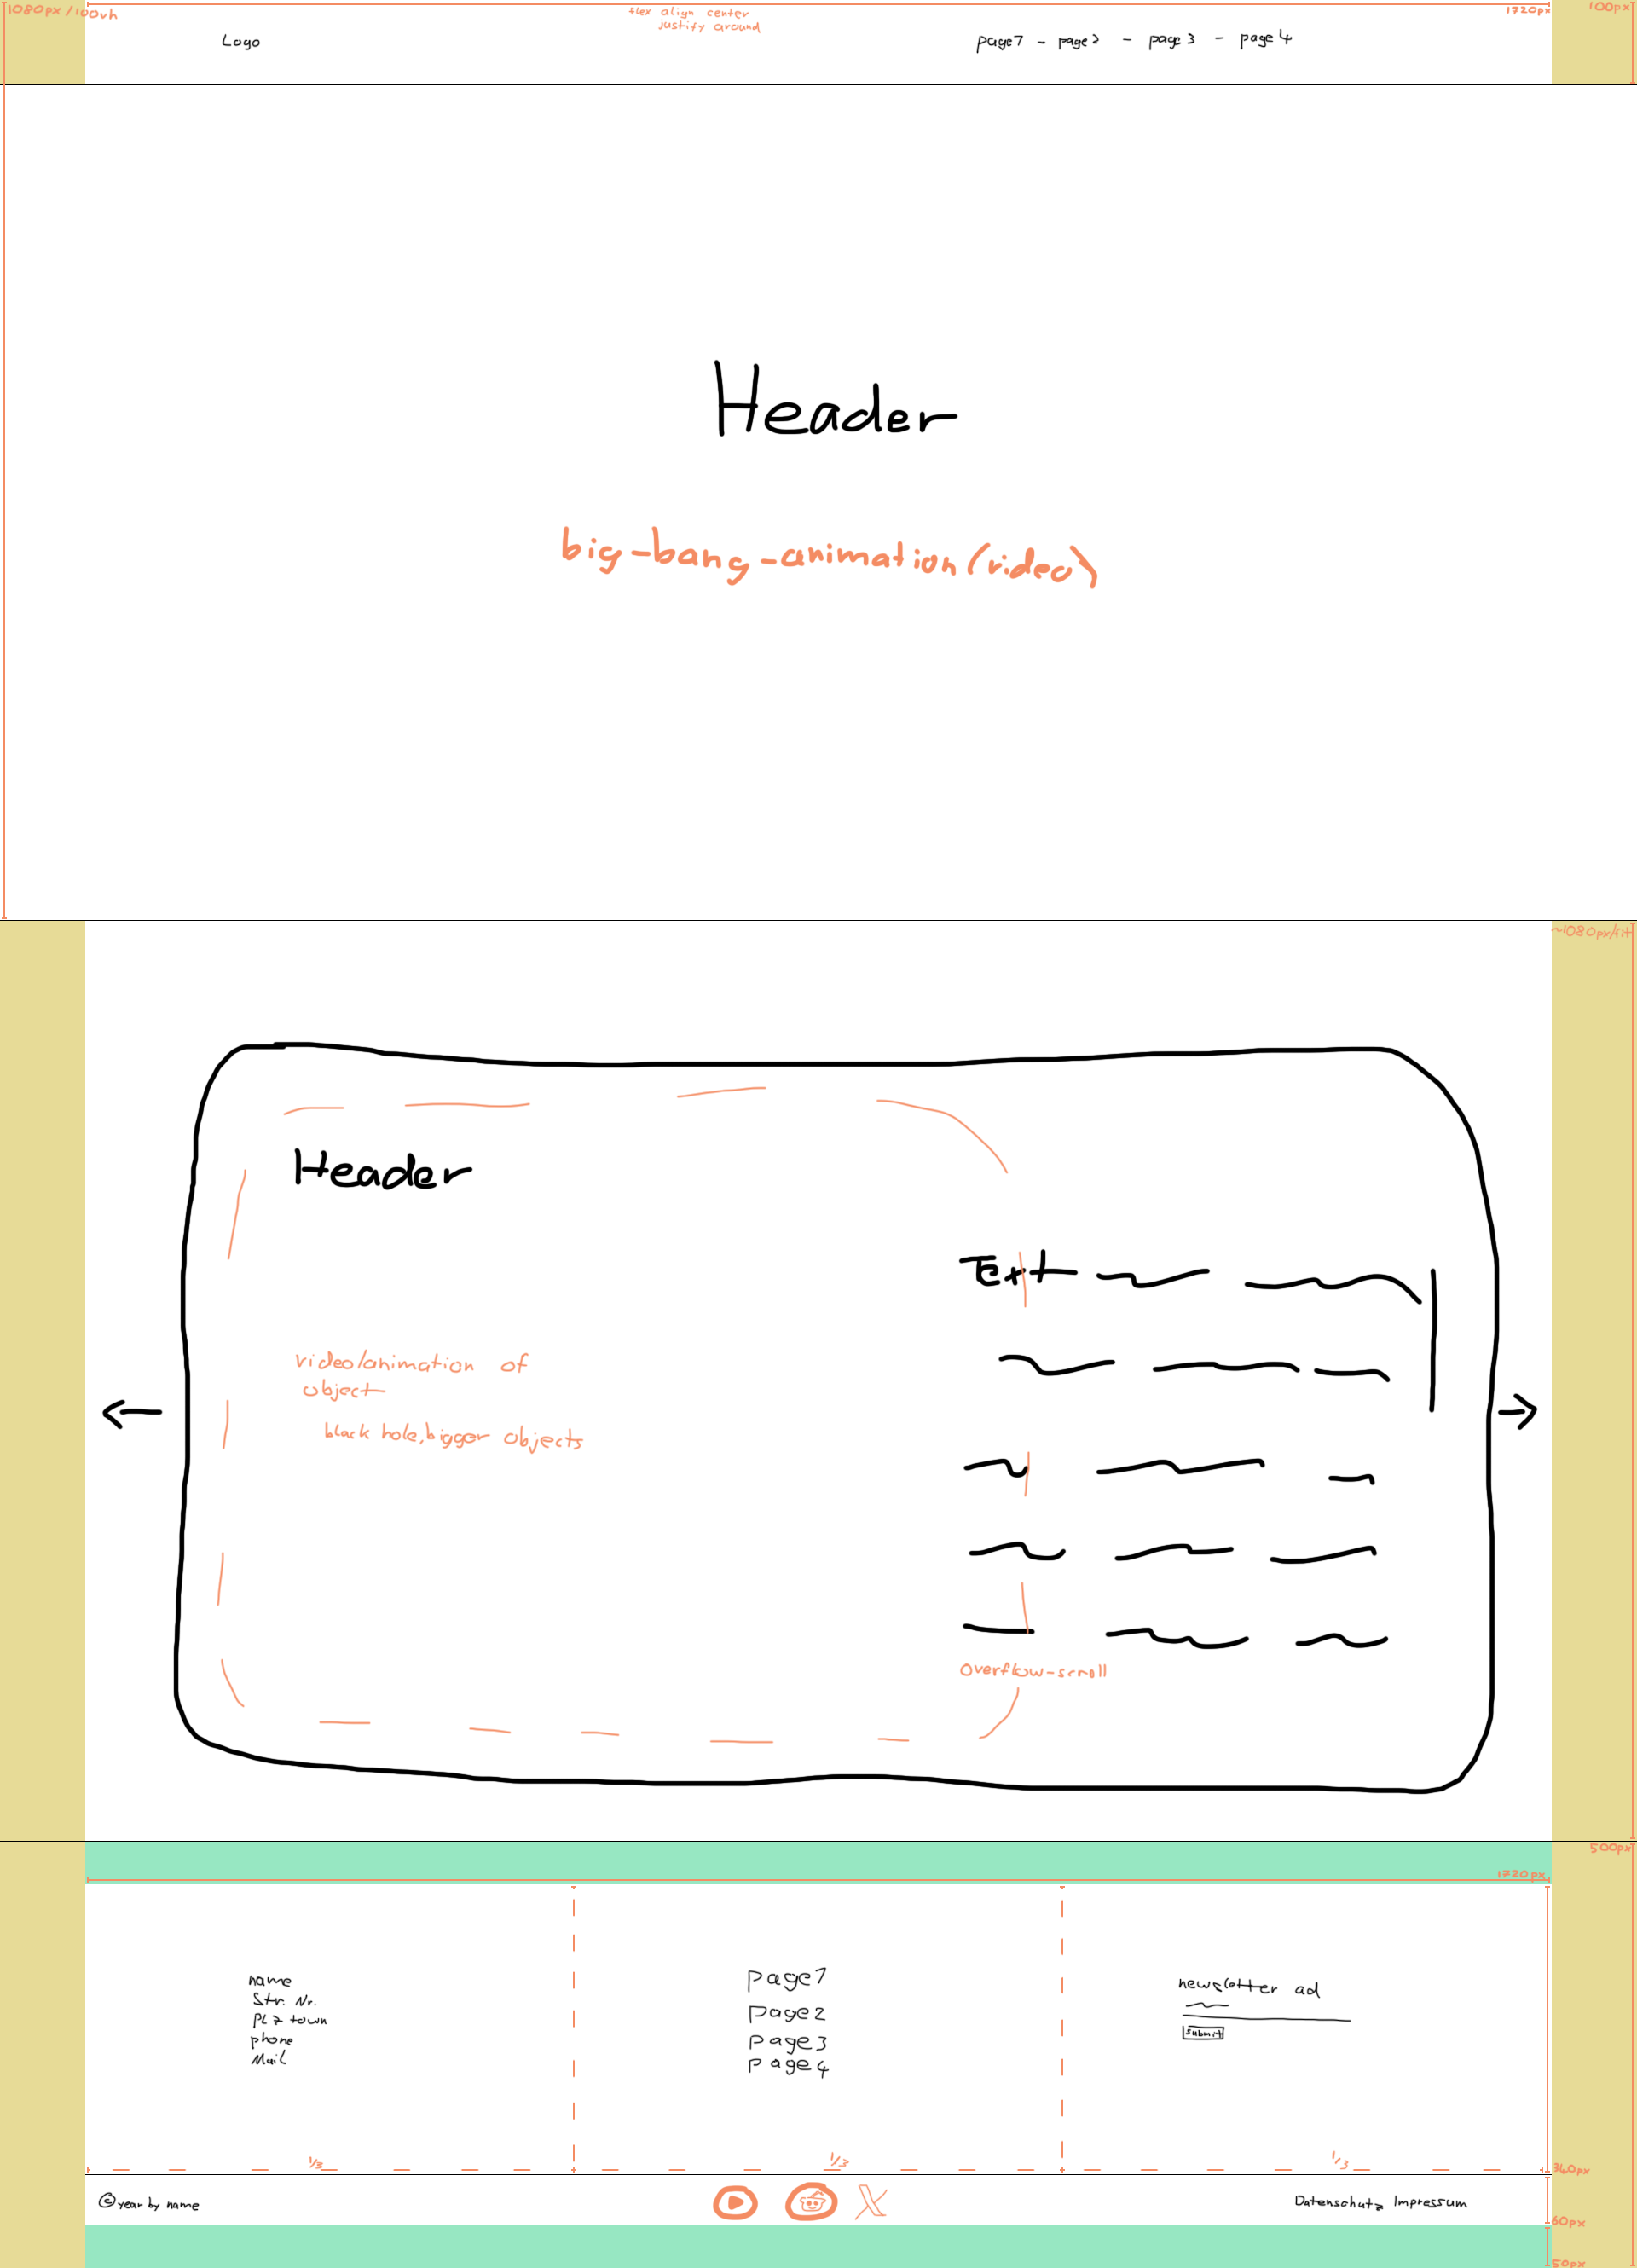 1080px / 100vh
flex align center
justify around
1720px
100px
Logo
page1 - page2 - page3 - page4
Header
big-bang-animation (video)
~1080px/fit
Header
Text
video/animation of
object
black hole, bigger objects
overflow-scroll
500px
1720px
name
Str. Nr.
PLZ town
phone
Mail
page1
page2
page3
page4
newsletter ad
submit
1/3
1/3
1/3
340px
© year by name
Datenschutz Impressum
60px
50px